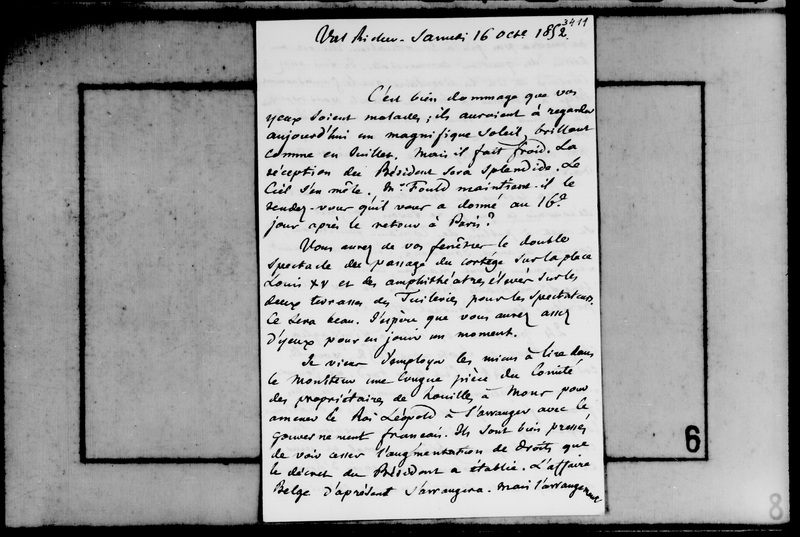 3411
Val Richer - Samedi 16 Octe 1852
C'est bien dommage que vos
yeux soient malades ; ils auroient à regarder
aujourd'hui un magnifique soleil, brillant
comme en Juillet. Mais il fait froid. La
réception du Président sera splendide. Le
Ciel s'en mêle. Mr Fould maintient-il le
rendez-vous qu'il vous a donné au 16e
jour après le retour à Paris ?
Vous aurez de vos fenêtres le double
spectacle du passage du cortège sur la place
Louis XV et des amphithéatres élevés sur les
deux terrasses des Tuileries pour les spectateurs.
Ce sera beau. J'espère que vous aurez assez
d'yeux pour en jouir un moment.
Je viens d'employer les miens à lire dans
le Moniteur une longue pièce du Comité
des propriétaires de houilles, à Mons, pour
amener le Roi Léopold à s'arranger avec le
gouvernement français. Ils sont bien pressés
de voir cesser l'augmentation de droits que
le décret du Président a établie. L'affaire
Belge d'à présent s'arrangera. Mais l'arrangement
6
8